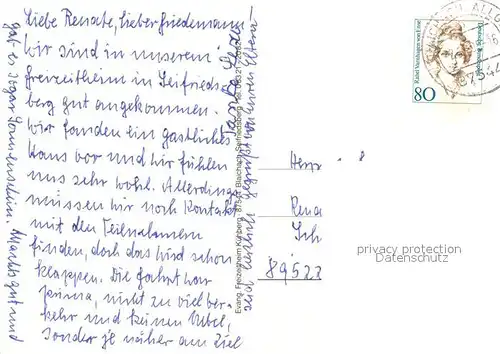 Liebe Renate, Lieber Friedemann
wir sind in unserem
Freizeitheim in Seifrieds-
berg gut angekommen.
Wir fanden ein gastliches
Haus vor und wir fühlen
uns sehr wohl. Allerdings
müssen wir noch Kontakt
mit den Teilnehmern
finden, doch das wird schon
klappen. Die Fahrt war
prima, nicht zu viel Ver-
kehr und keinen Nebel,
sondern je näher am Ziel
gab es sogar Sonnenschein. Machts gut und
seid herzlich gegrüßt von euren Eltern
Evang. Freizeitheim Blaichach-Seifriedsberg Tel.
80
Herr
Rena
Sch
89522
privacy protection
Datenschutz